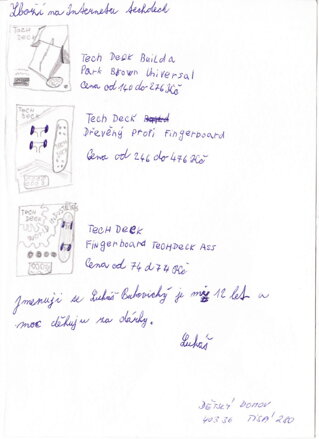 Zboží na Internetu
TECH
DECK
TECH DECK Build a
Park Brown Universal
Cena od 140 do 276 Kč
TECH DECK
Dřevěný Profi Fingerboard
Cena od 246 do 476 Kč
TECH
DECK
TECH DECK
Fingerboard TECHDECK ASS
Cena od 74 d 74 Kč
Jmenuji se Lukáš je mi 12 let a
moc děkuju za dárky.
Lukáš
DĚTSKÝ DOMOV
403 36 TISÁ 280